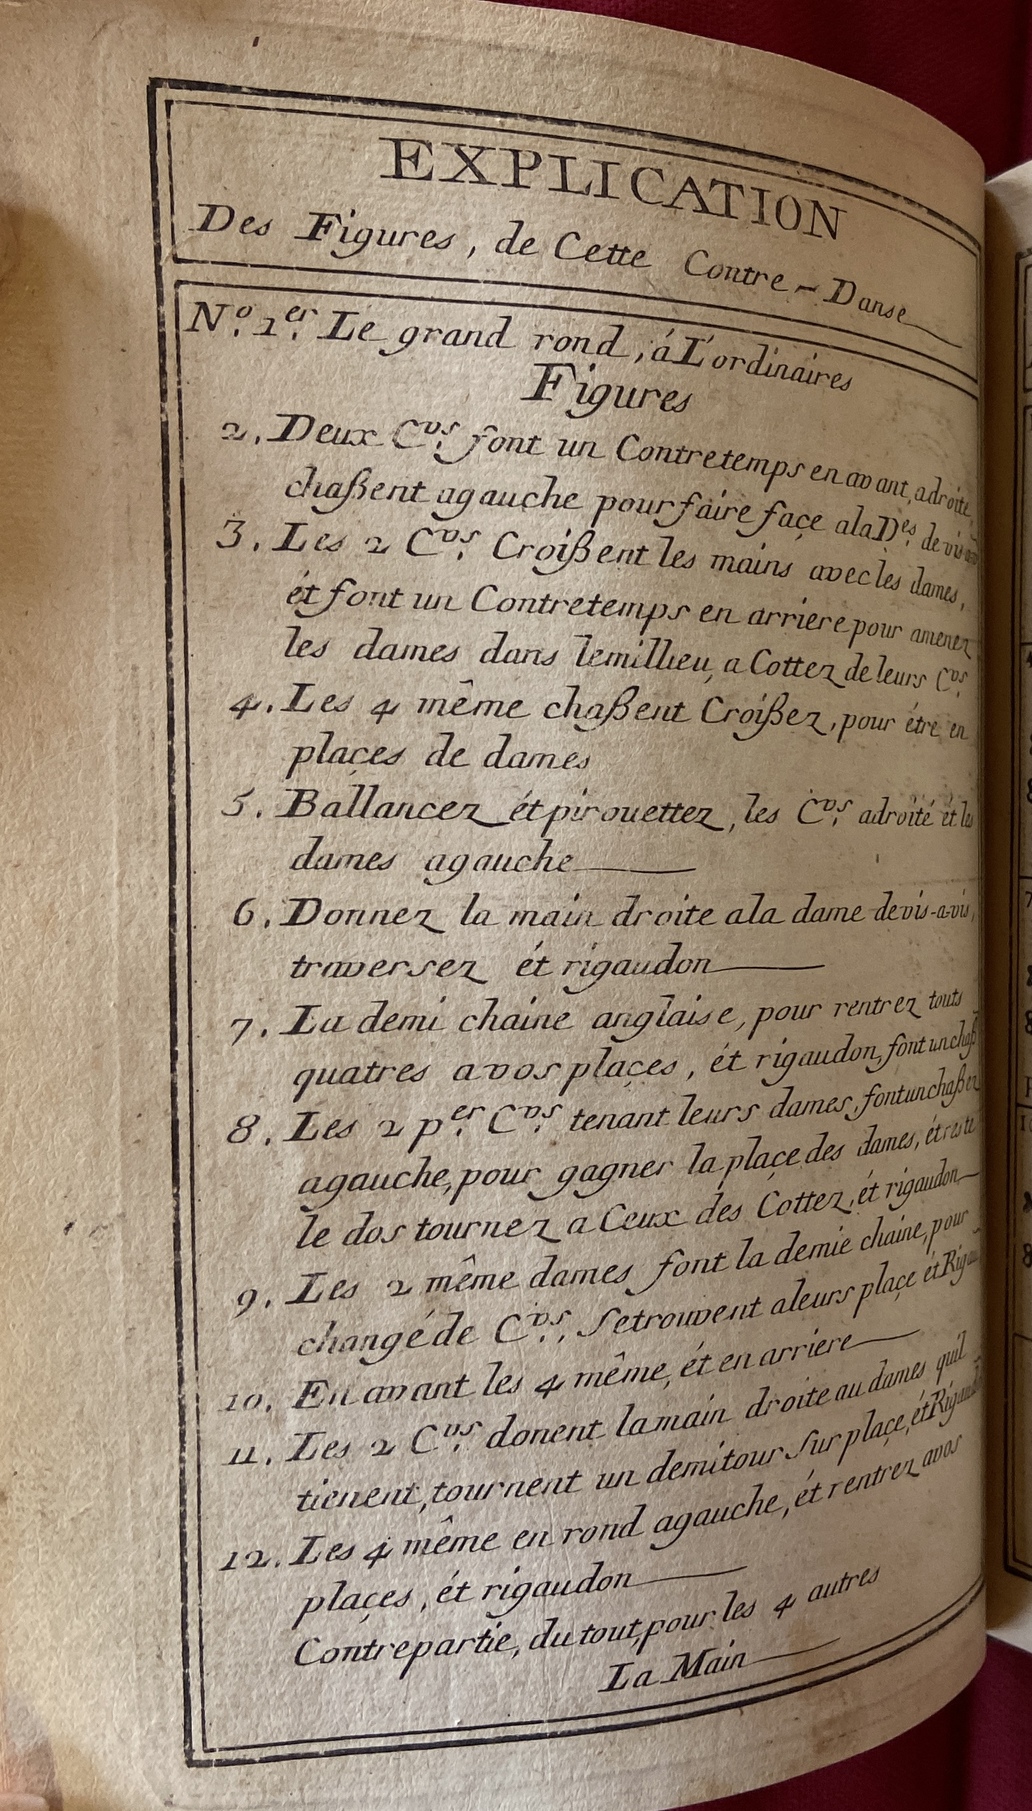 EXPLICATION
Des Figures, de Cette Contre-Danse
N.o 1.er Le grand rond, á L'ordinaires
Figures
2. Deux C.vs font un Contretemps en avant, adroite,
chaßent agauche pour faire façe ala D.es de vis
3. Les 2 C.vs Croißent les mains avec les dames,
ét font un Contretemps en arriere pour amenez
les dames dans lemillieu, a Cottez de leurs C.vs
4. Les 4 même chaßent Croißez, pour étre en
plaçes de dames
5. Ballancez ét pirouettez, les C.vs adroité ét les
dames agauche
6. Donnez la main droite ala dame de vis-a-vis,
traversez ét rigaudon
7. La demi chaine anglaise, pour rentrez touts
quatres a vos plaçes, ét rigaudon, font un chaß
8. Les 2 p.er C.vs tenant leurs dames, font un chaßez
agauche, pour gagner la plaçe des dames, ét reste
le dos tournez a Ceux des Cottez, ét rigaudon
9. Les 2 même dames font la demie chaine, pour
changé de C.vs, Se trouvent aleurs plaçe ét Rigau
10. En avant les 4 même, ét en arriere
11. Les 2 C.vs donent la main droite au dames quil
tienent, tournent un demi tour Sur plaçe, ét Rigaudon
12. Les 4 même en rond agauche, ét rentrez avos
plaçes, ét rigaudon
Contrepartie, du tout, pour les 4 autres
La Main